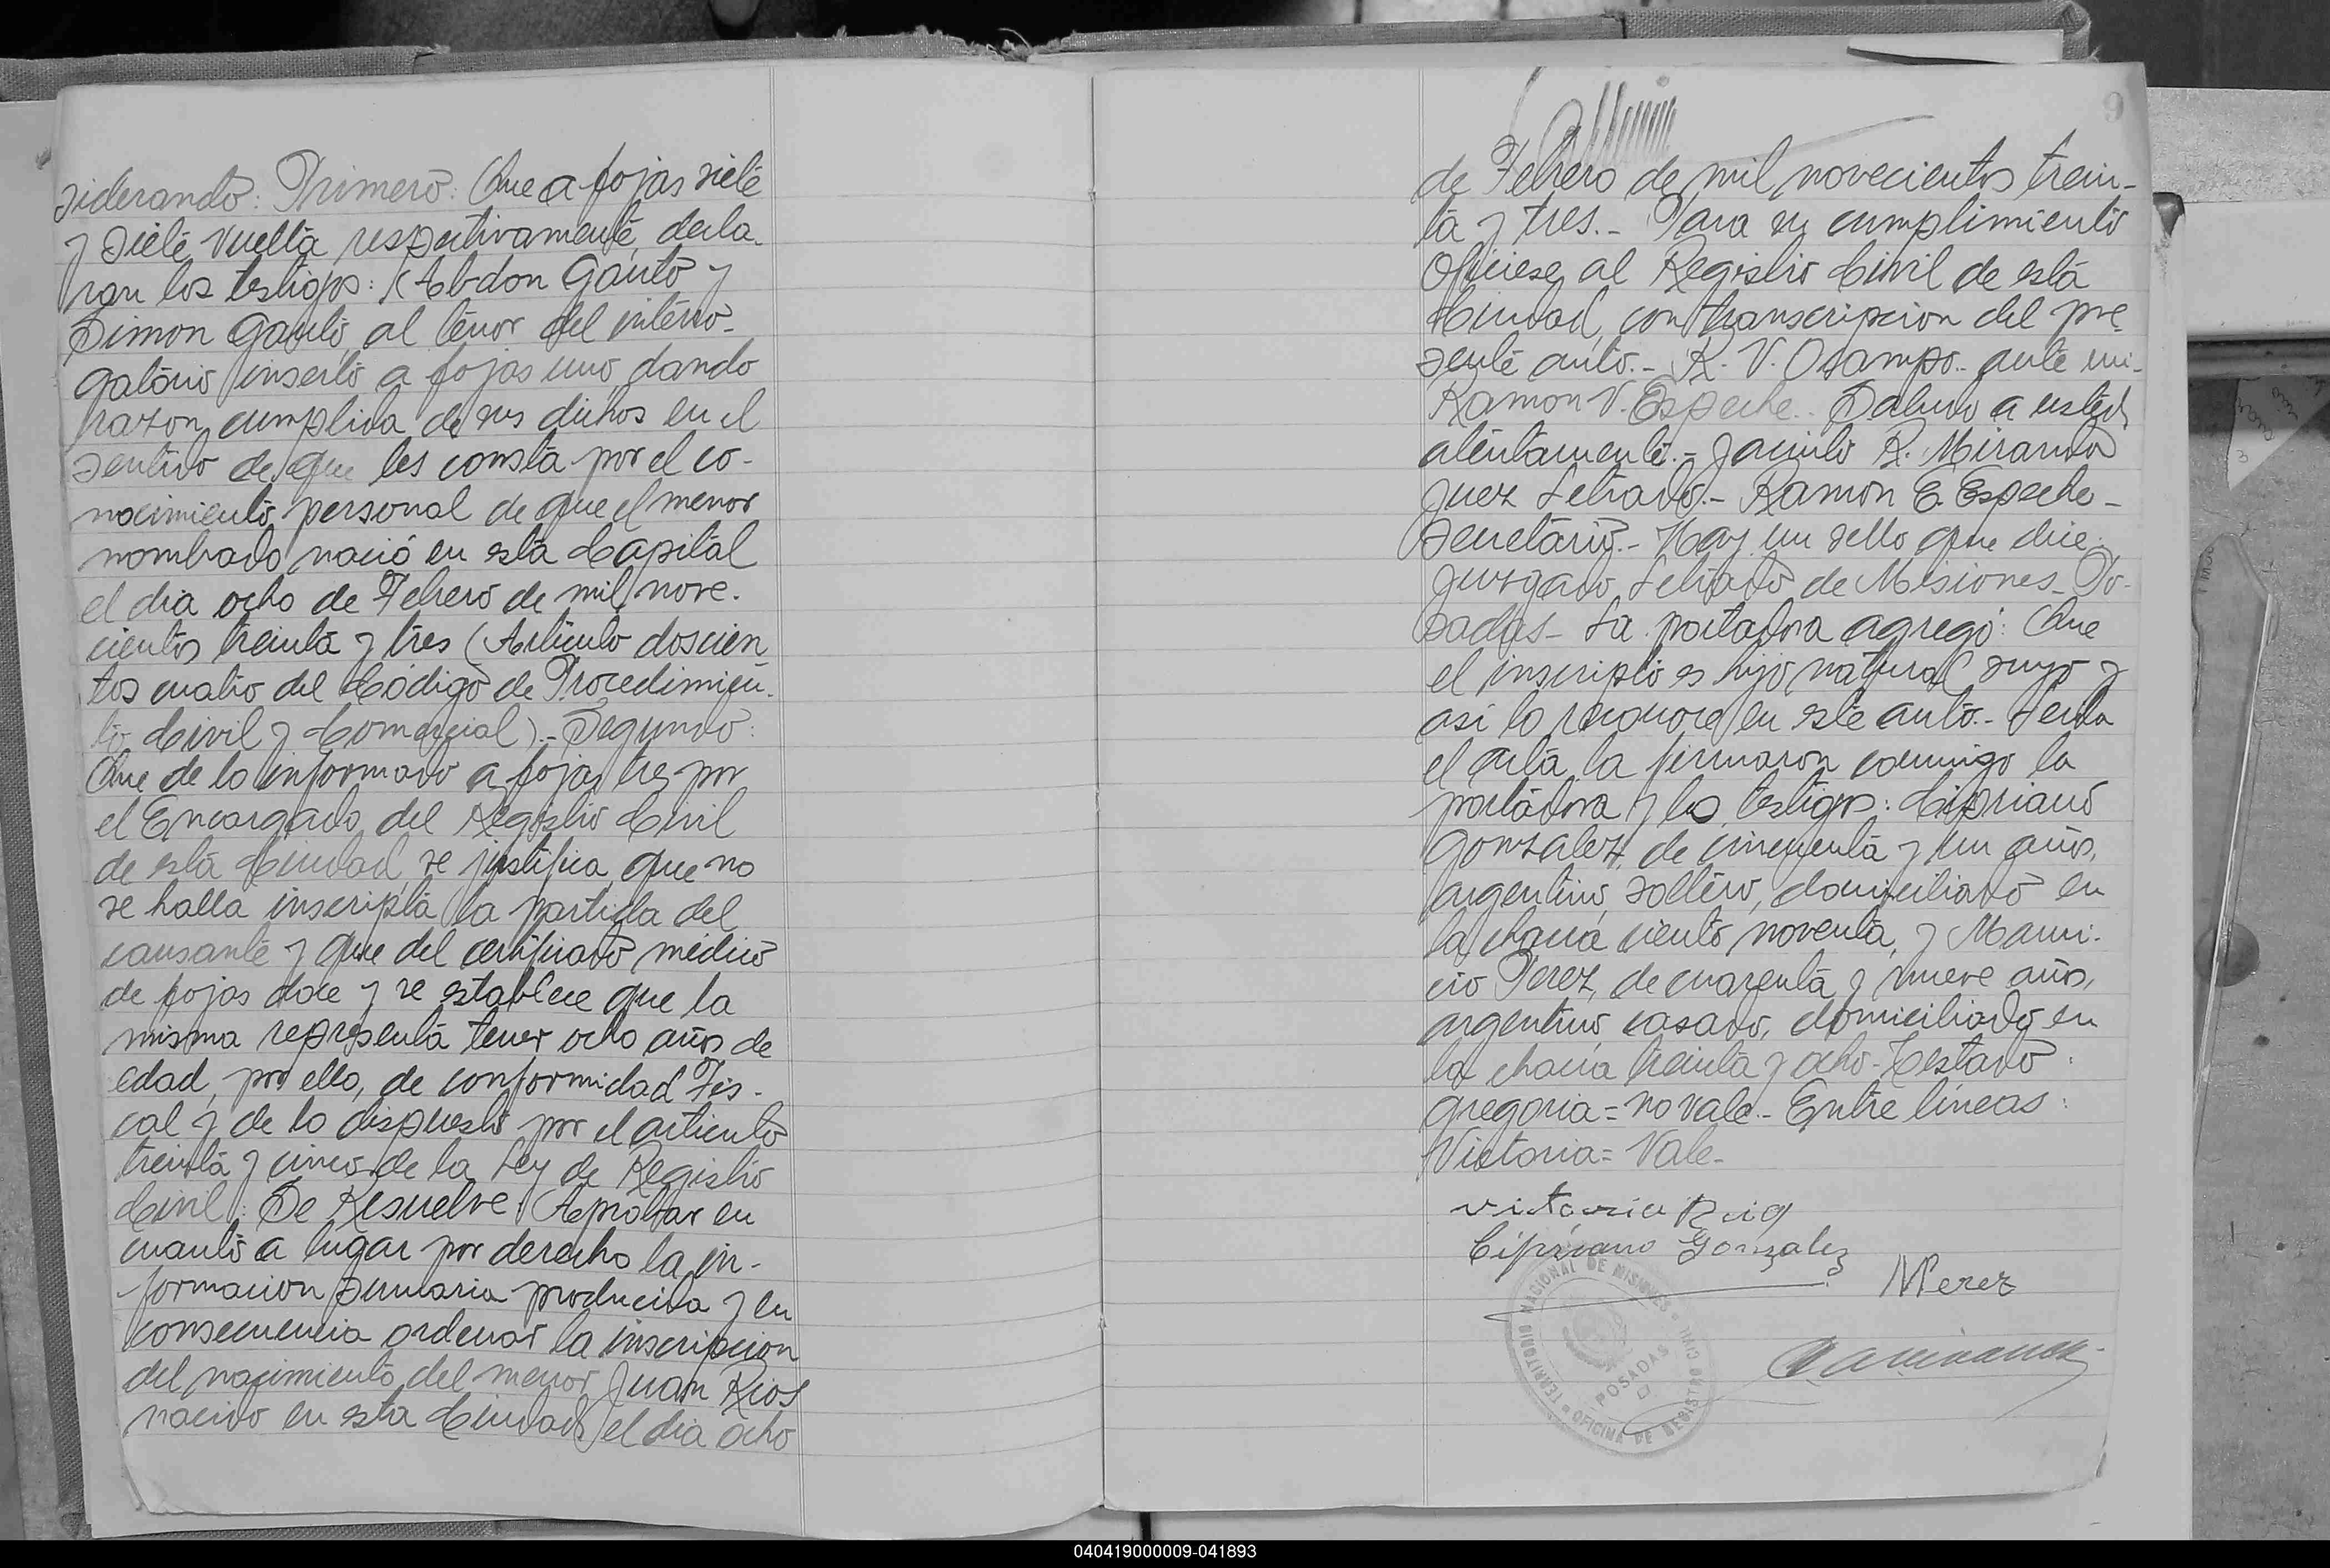 siderando: Primero: Que a fojas siete
y siete vuelta respectivamente, decla-
ran los testigos: Abdon Gauto y
Simon Gauto, al tenor del interro-
gatorio inserto a fojas uno, dando
razon cumplida de sus dichos en el
sentido de que les consta por el co-
nocimiento personal de que el menor
nombrado nació en esta Capital
el dia ocho de Febrero de mil nove-
cientos treinta y tres (Artículo doscien-
tos cuatro del Código de Procedimien-
to Civil y Comercial).- Segundo:
Que de lo informado a fojas tres por
el Encargado del Registro Civil
de esta Ciudad, se justifica que no
se halla inscripta la partida del
causante y que del certificado médico
de fojas doce y se establece que la
misma representa tener ocho años de
edad, por ello, de conformidad Fis-
cal y de lo dispuesto por el articulo
treinta y cinco de la Ley de Registro
Civil: Se Resuelve: Aprobar en
cuanto a lugar por derecho la in-
formacion sumaria producida y en
consecuencia ordenar la inscripcion
del nacimiento del menor Juan Rios
nacido en esta Ciudad el dia ocho
9
de Febrero de mil novecientos trein-
ta y tres.- Para su cumplimiento
Ofíciese al Registro Civil de esta
Ciudad, con transcripcion del pre-
sente auto.- R. V. Osampo.- ante mi-
Ramon V. Espeche.- Saludo a usted
atentamente.- Jacinto R. Miranda
Juez Letrado.- Ramon E. Espeche-
Secretario.- Hay un sello que dice:
Juzgado Letrado de Misiones- Po-
sadas- La portadora agregó: Que
el inscripto es hijo natural suyo y
asi lo reconoce en este auto.- Leida
el acta, la firmaron conmigo la
portadora y los testigos: Cipriano
Gonzalez, de cincuenta y un años,
argentino, soltero, domiciliado en
la chacra ciento noventa, y Mauri-
cio Perez, de cuarenta y nueve años,
argentino, casado, domiciliado en
la chacra treinta y ocho- Testado:
Gregoria= no vale- Entre líneas:
Victoria= Vale-
victoria Ruiz
Cipriano Gonzalez
MPerez
TERRITORIO NACIONAL DE MISIONES
OFICINA DE REGISTRO CIVIL
POSADAS
040419000009-041893